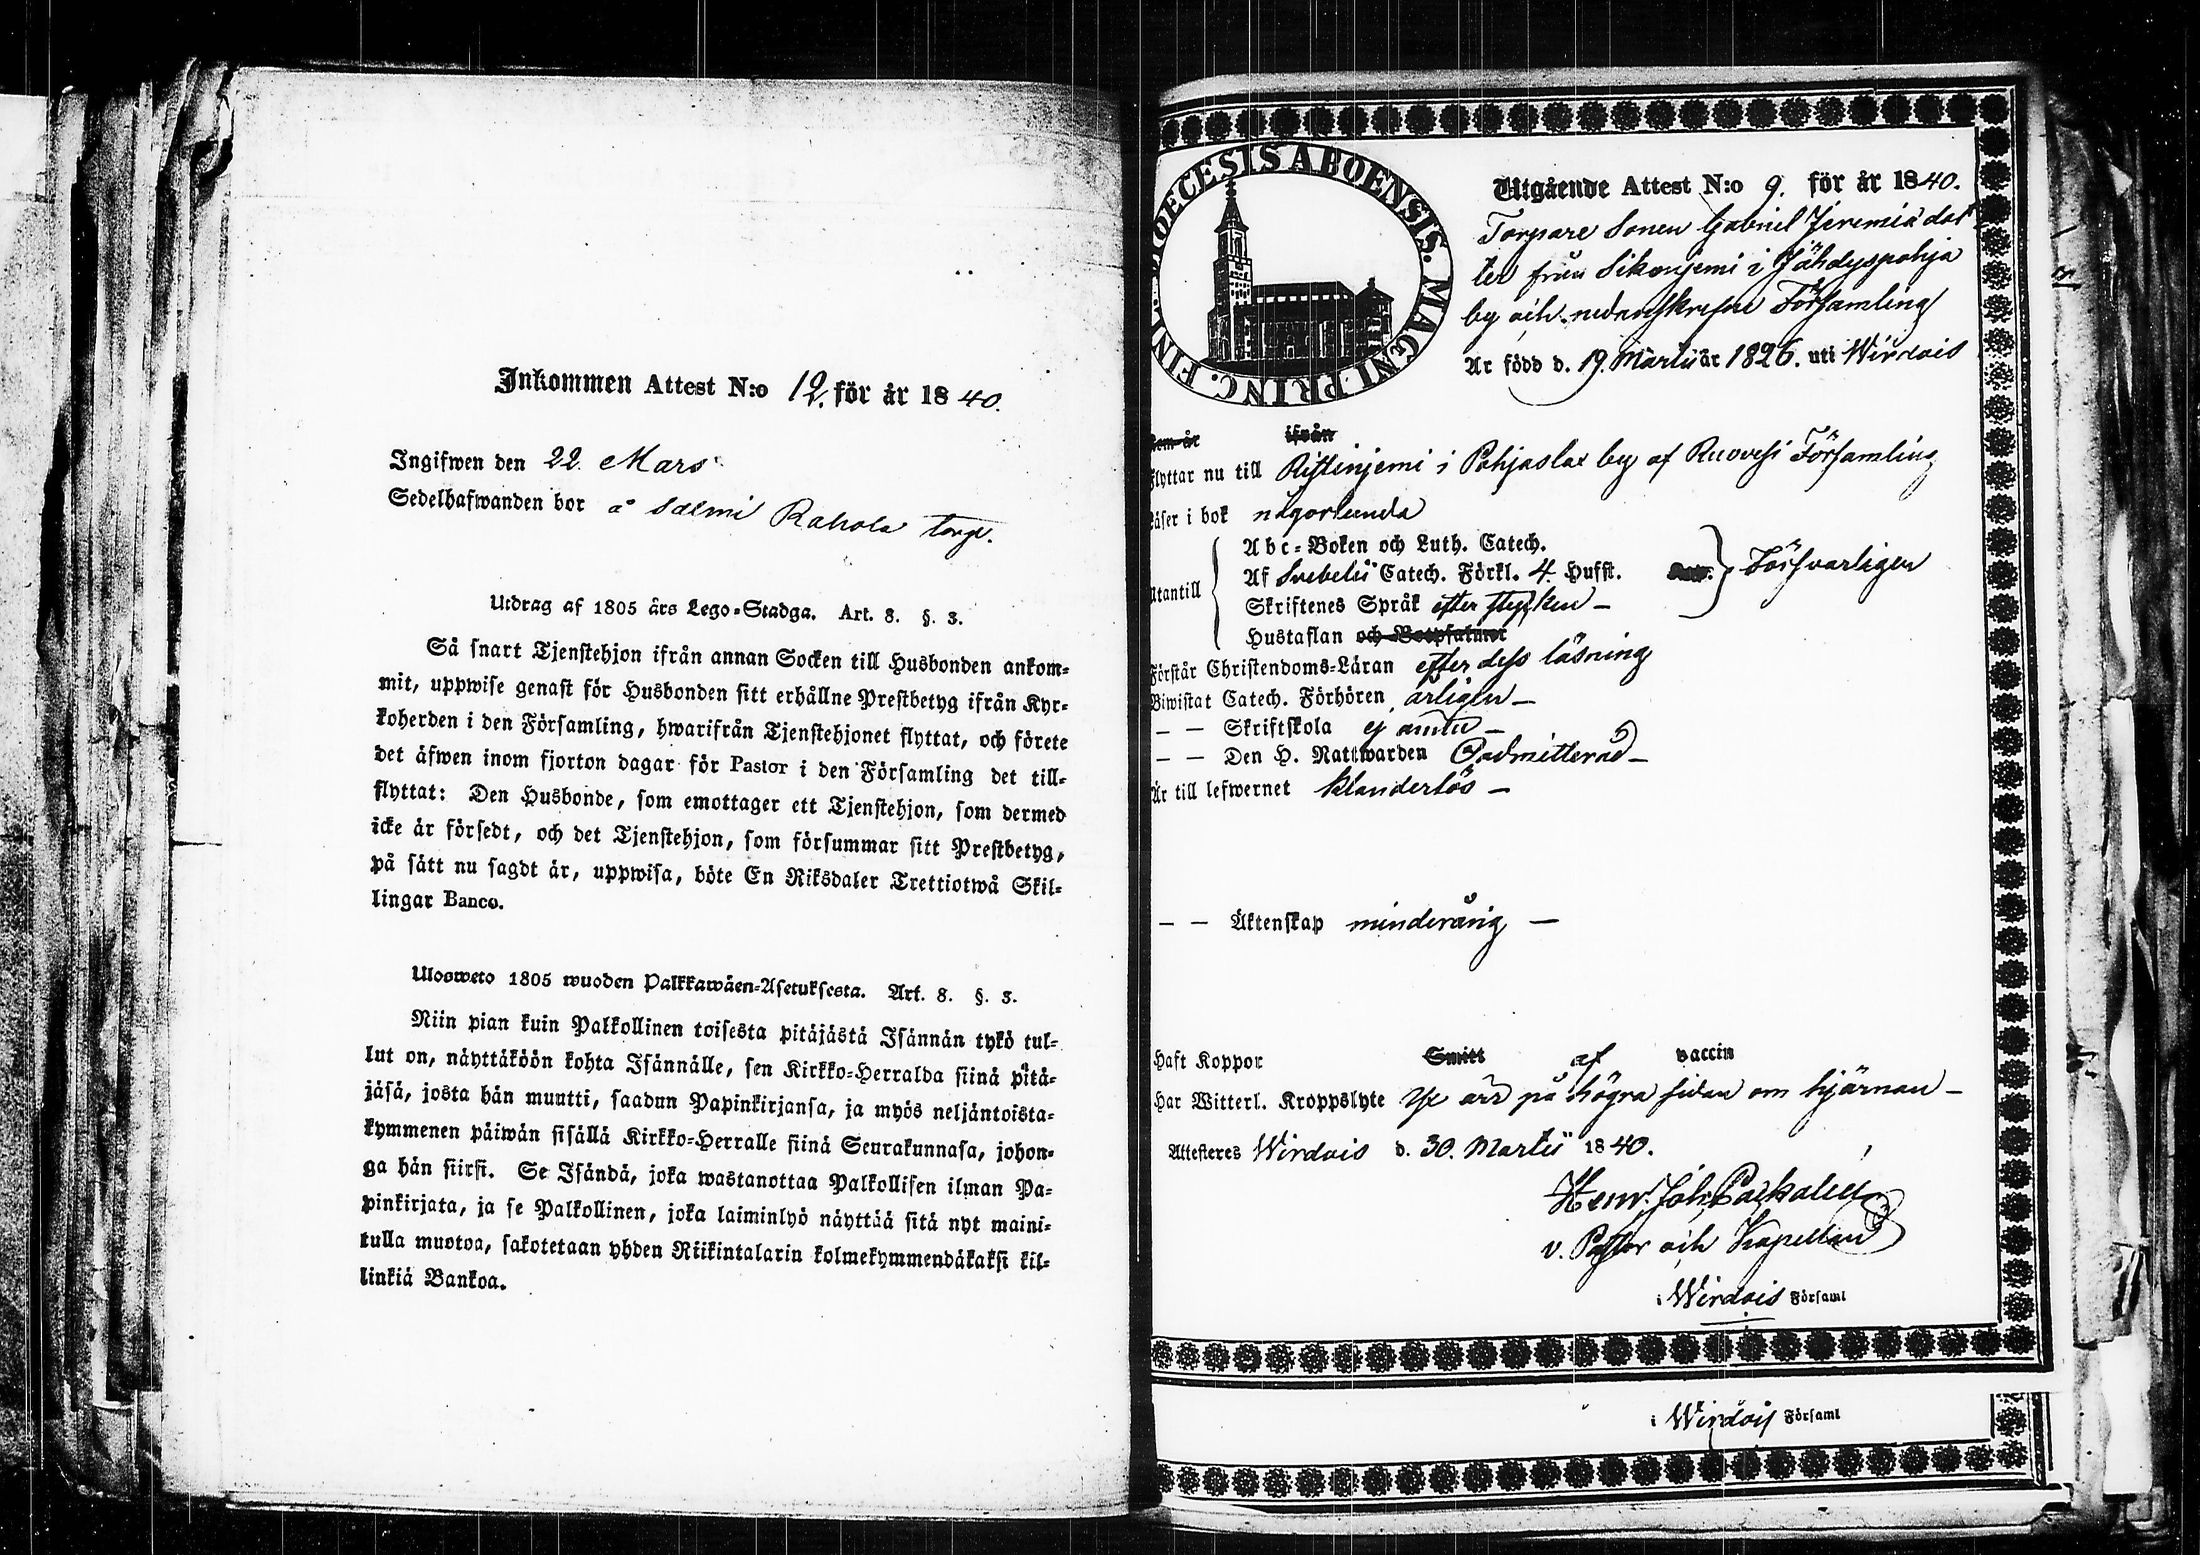 Inkommen Attest N:o 12. för år 1840.
Ingifwen den 22. Mars
Sedelhafwanden bor å Salmi Rahola torp.
Utdrag af 1805 års Lego=Stadga. Art. 8. §. 3.
Så snart Tjenstehjon ifrån annan Socken till Husbonden ankom=
mit, uppwise genast för Husbonden sitt erhållne Prestbetyg ifrån Kyr=
koherden i den Församling, hwarifrån Tjenstehjonet flyttat, och förete
det äfwen inom fjorton dagar för Pastor i den Församling det till=
flyttat: Den Husbonde, som emottager ett Tjenstehjon, som dermed
icke är försedt, och det Tjenstehjon, som försummar sitt Prestbetyg,
på sätt nu sagdt är, uppwisa, böte En Riksdaler Trettiotwå Skil=
lingar Banco.
Ulosweto 1805 wuoden Palkkawäen=Asetuksesta. Art. 8. §. 3.
Niin pian kuin Palkollinen toisesta pitäjästä Isännän tykö tul=
lut on, näyttäköön kohta Isännälle, sen Kirkko=Herralda siinä pitä=
jäsä, josta hän muutti, saadun Papinkirjansa, ja myös neljäntoista=
kymmenen päiwän sisällä Kirkko=Herralle siinä Seurakunnasa, johon=
ga hän siirsi. Se Isändä, joka wastanottaa Palkollisen ilman Pa=
pinkirjata, ja se Palkollinen, joka laiminlyö näyttää sitä nyt maini=
tulla muotoa, sakotetaan yhden Riikintalarin kolmekymmendäkaksi kil=
linkiä Bankoa.
DIOECESIS ABOENSIS. MAGNI PRINC. FINL.
Utgående Attest N:o 9. för år 1840.
Torpare Sonen Gabriel Jeremiædot
ter från Sikonjemi i Jähdyspohja
by och nedanskrefne Församling
Är född d. 19 Martii år 1826. uti Wirdois
kom år ifrån
flyttar nu till Ristinjemi i Pohjaslax by af Ruovesi Församling
Läser i bok någorlunda
Utantill
Abc=Boken och Luth. Catech.
Af Svebelii Catech. Förkl. 4. Hufst. Försvarligen
Skriftenes Språk efter stycken —
Hustaflan och Botpsalmer
Förstår Christendoms=Läran efter dess läsning
Biwistat Catech. Förhören årligen —
— — Skriftskola ej ännu —
— — Den H. Nattwarden Oadmitterad —
Är till lefwernet klanderlös —
— — Äktenskap minderårig —
Haft Koppor Smitt af vaccin
Har Witterl. Kroppslyte ärr på högra sidan om hjärnan —
Attesteres Wirdois d. 30. Martii 1840.
Henr. Joh. Packalén
v. Pastor och Kapellan
i Wirdois Församl
i Wirdois Församl